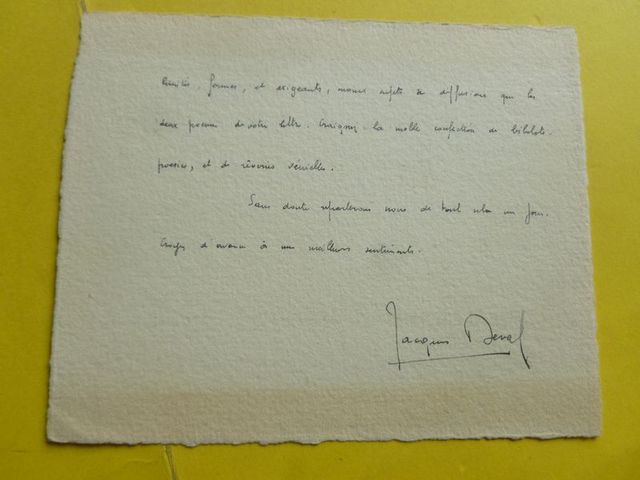 limités, fermes, et exigeants, moins sujets à diffusion que les
deux poèmes de votre lettre. Craignez la molle confection de bibelots
poésies, et de rêveries vénielles.
Sans doute reparlerons nous de tout cela un jour.
Croyez d'avance à mes meilleurs sentiments.
Jacques Deval